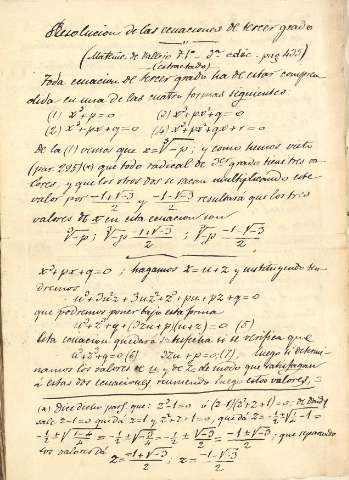 Resolucion de las ecuaciones de tercer grado
(Matems. de Vallejo T. 1º - 3ª edic. - pag 433)
(extractado)
Toda ecuacion de tercer grado ha de estar compren
dida en una de las cuatro formas siguientes
(1) x³+p=0 (3) x³+px²+q=0
(2) x³+px+q=0 (4) x³+px²+qx+r=0
De la (1) vemos que x=∛-p; y como hemos visto
(par. 295)(a) que todo radical de 3er grado tiene tres va-
lores, y que los otros dos se sacan multiplicando este
valor por (-1+√-3)/2 y (-1-√-3)/2 resultará que los tres
valores de x en esta ecuacion son
∛-p; ∛-p (-1+√-3)/2; ∛-p (-1-√-3)/2
x³+px+q=0; hagamos x=u+z y sustituyendo ten-
dremos
u³+3u²z+3uz²+z³+pu+pz+q=0
que podremos poner bajo esta forma
u³+z³+q+(3zu+p)(u+z)=0 (5)
Esta ecuacion quedará satisfecha si se verifica que
u³+z³+q=0 (6) 3zu+p=0 (7), luego si determi-
namos los valores de u y de z de modo que satisfagan
á estas dos ecuaciones, reuniendo luego estos valores,
(a) Dice dicho parf. que: z³-1=0 ó (z-1)(z²+z+1)=0; de donde
sale z-1=0 que dá z=1 y z²+z+1=0, que dá z=-½±√(¼-1)=
-½±√((1-4)/4)=-½±√(-3/4)=-½±√-3/2=(-1±√-3)/2; que separando
los valores dá
z=(-1+√-3)/2; z=(-1-√-3)/2